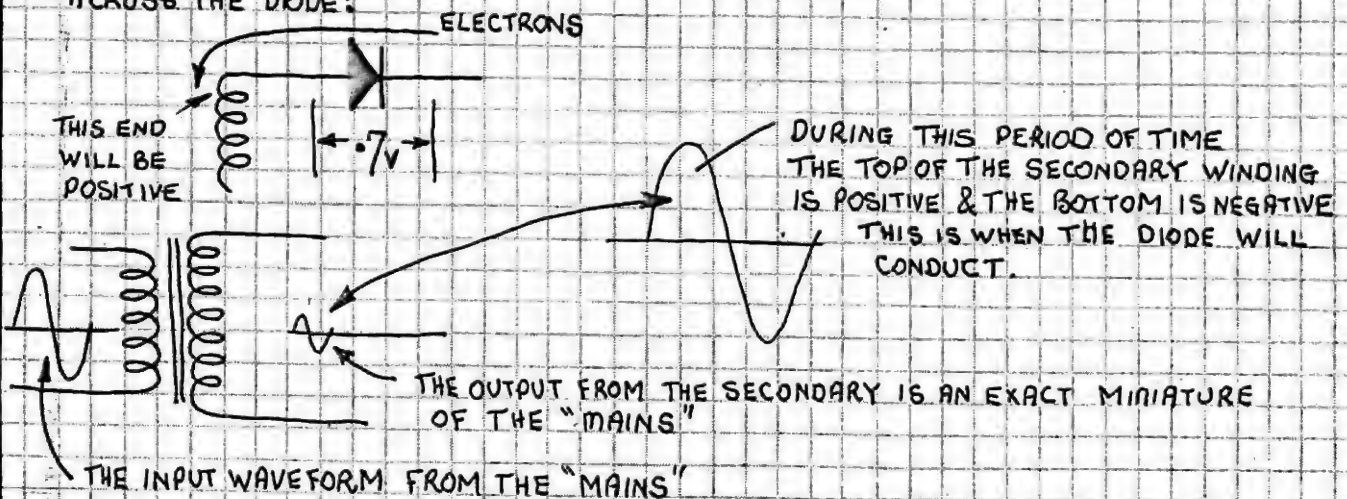 ACROSS THE DIODE.
ELECTRONS
THIS END
WILL BE
POSITIVE
.7v
DURING THIS PERIOD OF TIME
THE TOP OF THE SECONDARY WINDING
IS POSITIVE & THE BOTTOM IS NEGATIVE
THIS IS WHEN THE DIODE WILL
CONDUCT.
THE OUTPUT FROM THE SECONDARY IS AN EXACT MINIATURE
OF THE "MAINS"
THE INPUT WAVEFORM FROM THE "MAINS"